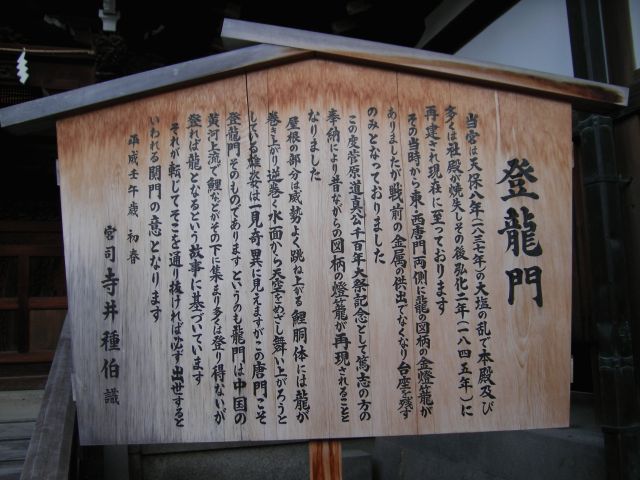 登龍門
当宮は天保八年(一八三七年)の大塩の乱で本殿及び
多くは社殿が焼失しその後弘化二年(一八四五年)に
再建され現在に至っております
その当時から東・西唐門両側に龍の図柄の金燈籠が
ありましたが戦前の金属の供出でなくなり台座を残す
のみとなっておりました
この度菅原道真公千百年大祭記念として篤志の方の
奉納により昔ながらの図柄の燈籠が再現されることと
なりました
屋根の部分は威勢よく跳ね上がる鯉胴体には龍が
巻き上がり逆巻く水面から天空をめざし舞い上がろうと
している雄姿は一見奇異に見えますがこの唐門こそ
登龍門そのものであります というのも龍門は中国の
黄河上流で鯉などがその下に集まり多くは登り得ないが
登れば龍となるという故事に基づいています
それが転じてそこを通り抜ければ必ず出世すると
いわれる関門の意となります
平成壬午歳 初春
宮司 寺井種伯 識